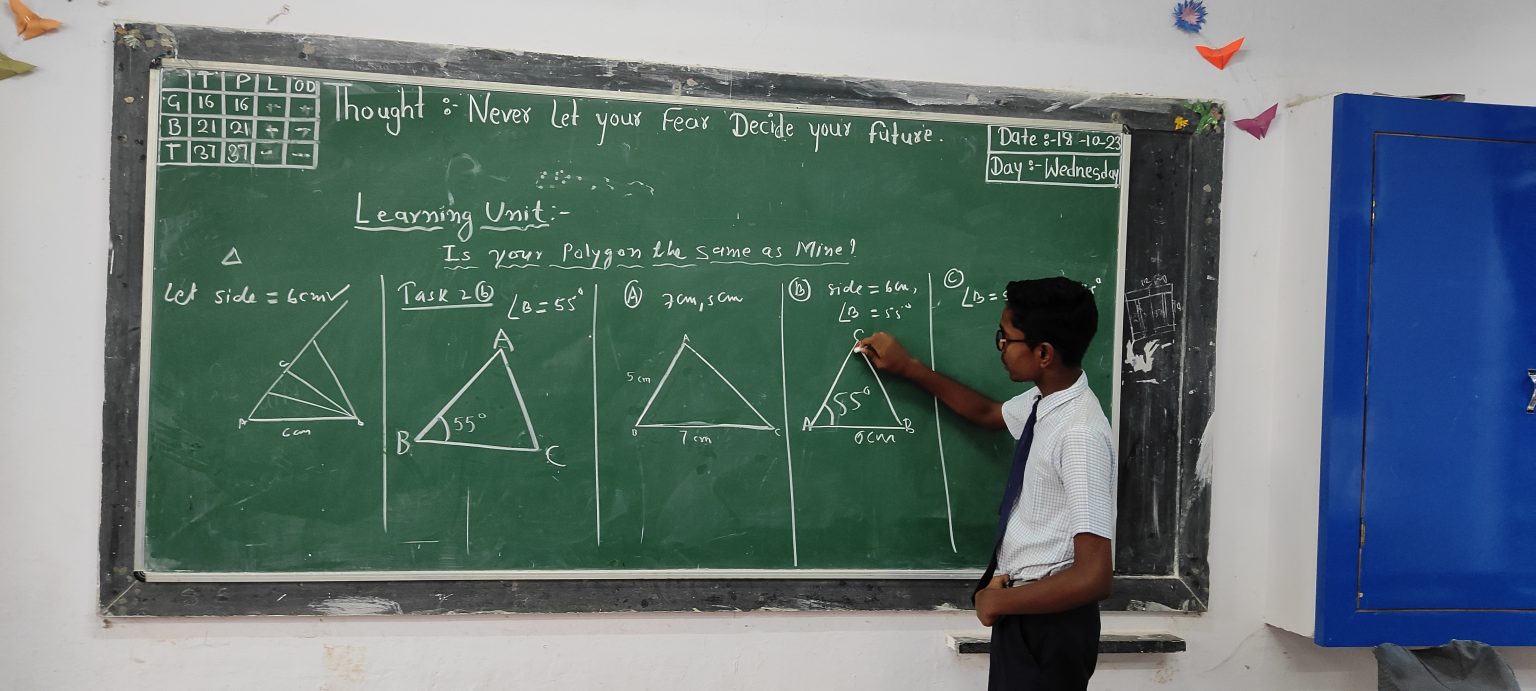 T P L OD
G 16 16 - -
B 21 21 - -
T 37 37 - -
Thought :- Never Let your Fear Decide your future.
Date :- 18-10-23
Day :- Wednesday
Learning Unit:-
Is your Polygon the same as Mine?
Let side = 6cm
C
A
6cm
Task 2 (b)
∠B = 55°
A
55°
B
C
(A) 7cm, 5cm
A
5cm
B
C
7cm
(B) side = 6cm,
∠B = 55°
C
55°
A
B
6cm
(C)
∠B =